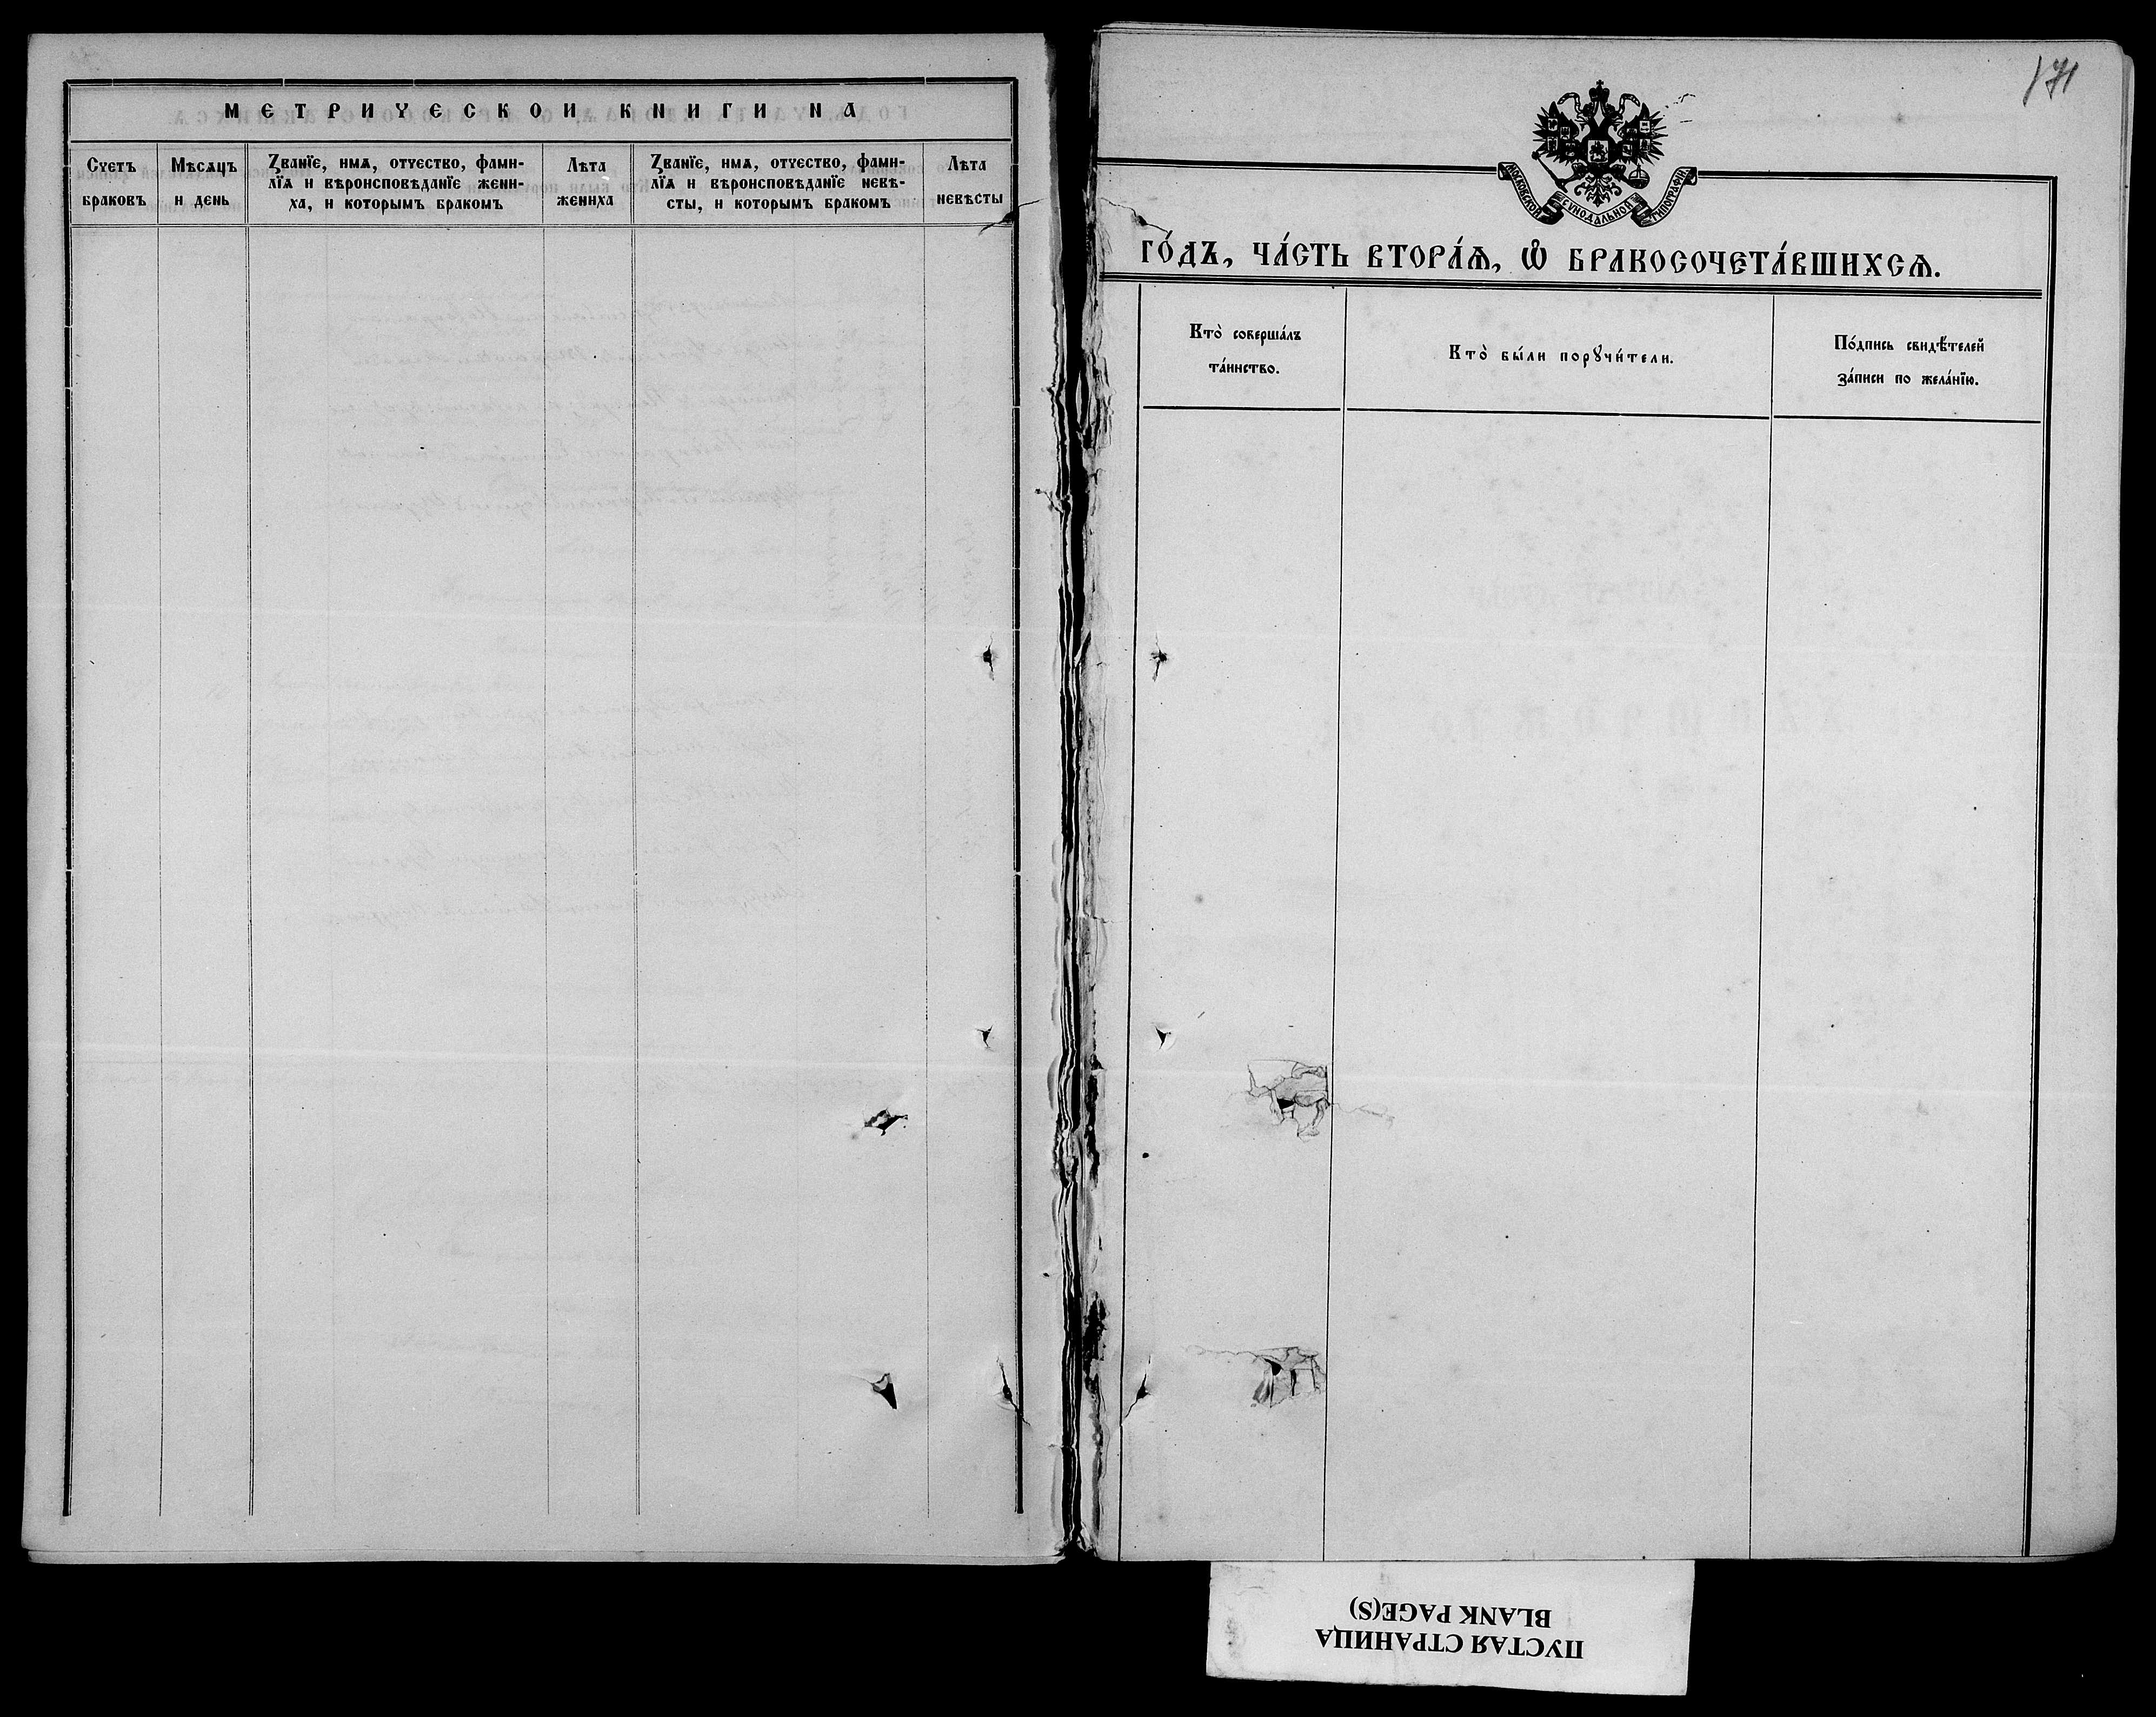 МЕТРИЧЕСКОИ КНИГИ НА
Счетъ
браковъ
Мѣсѧцъ
и день
Званїе, имѧ, отчество, фами-
лїѧ и вѣроисповѣданїе жени-
ха, и которымъ бракомъ
Лѣта
жениха
Званїе, имѧ, отчество, фами-
лїѧ и вѣроисповѣданїе невѣ-
сты, и которымъ бракомъ
Лѣта
невѣсты
171
МОСКОВСКОЙ СѴНОДАЛЬНОЙ ТИПОГРАФІИ
ГО́ДЪ, ЧА́СТЬ ВТОРА́Ѧ, Ѽ БРАКОСОЧЕТА́ВШИХСѦ.
Кто̀ соверша́лъ
та́инство.
Кто̀ бы́ли порꙋчи́тели.
По́дпись свидѣ́телей
за́писи по жела́нїю.
ПУСТАЯ СТРАНИЦА
BLANK PAGE(S)